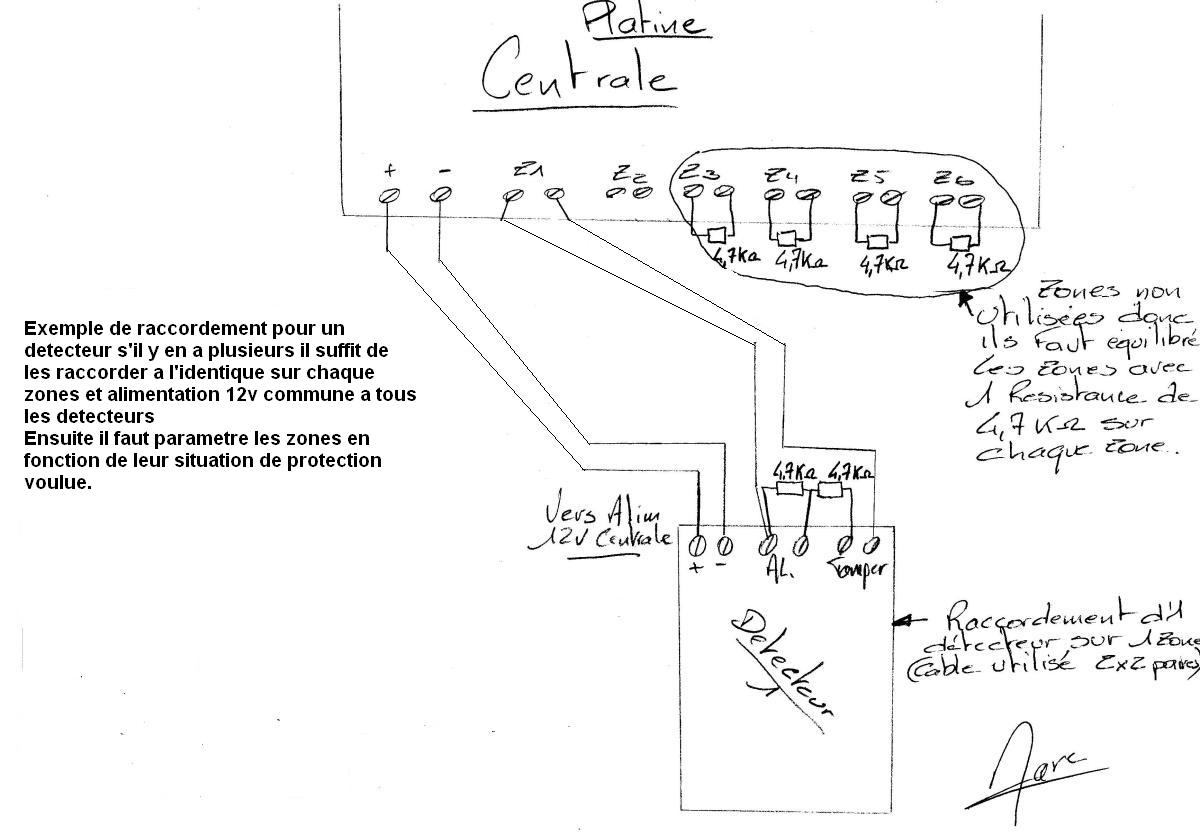 Platine
Centrale
+ - Z1 Z2 Z3 Z4 Z5 Z6
4,7KΩ 4,7KΩ 4,7KΩ 4,7KΩ
Zones non
utilisées donc
ils faut équilibré
les zones avec
1 Resistance de
4,7KΩ sur
chaque zone.
Exemple de raccordement pour un
detecteur s'il y en a plusieurs il suffit de
les raccorder a l'identique sur chaque
zones et alimentation 12v commune a tous
les detecteurs
Ensuite il faut parametre les zones en
fonction de leur situation de protection
voulue.
4,7KΩ 4,7KΩ
Vers Alim
12V Centrale
+ - AL. Tamper
Détecteur
1
Raccordement d'1
détecteur sur 1 Zone
(Cable utilisé 2x2 paires)
Marc